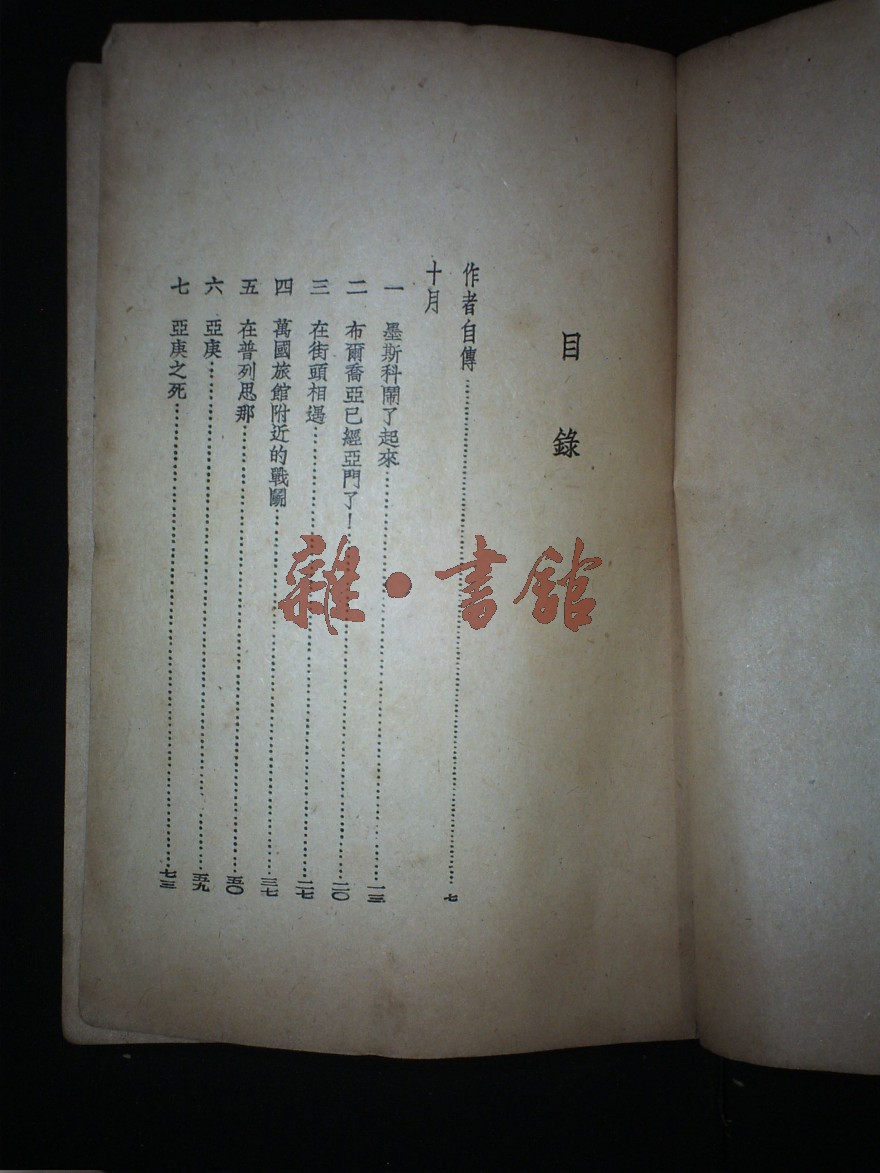 目錄
作者自傳……七
十月
一 墨斯科鬧了起來……一三
二 布爾喬亞已經亞門了！……二〇
三 在街頭相遇……二七
四 萬國旅館附近的戰鬭……三七
五 在普列思那……五〇
六 亞庚……五九
七 亞庚之死……七三
雜·書館